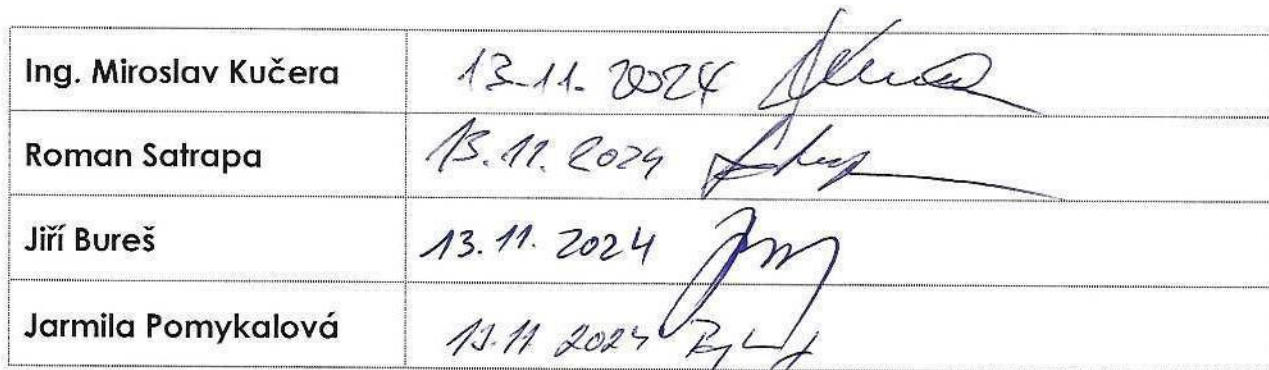 Ing. Miroslav Kučera 13.11. 2024
Roman Satrapa 13.11. 2024
Jiří Bureš 13.11. 2024
Jarmila Pomykalová 13.11 2024